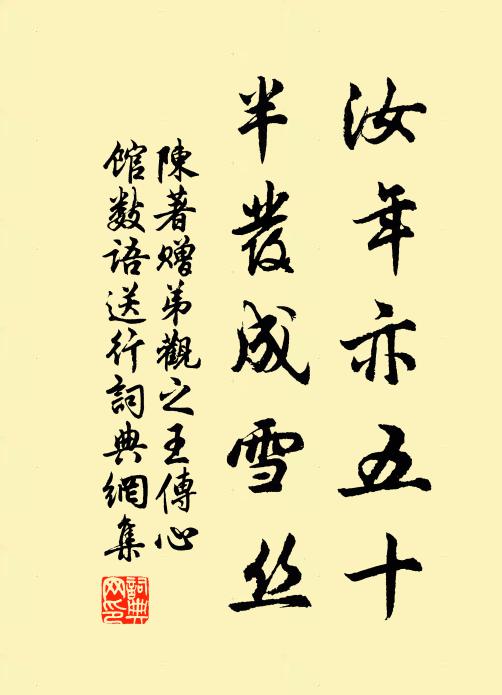 汝年亦五十
半發成雪丝
陳著贈弟觀之王傳心
館数语送行詞典網集
詞典网印